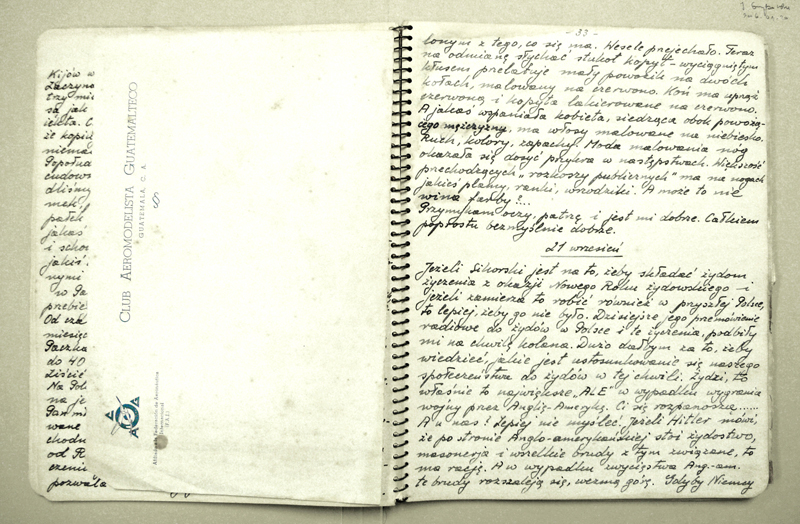 Kijów w
zaczyna
trzy mie
są jak
że kopie
niema
Popołud
cudows
dliśmy
pałek
jakaś
i schor
jakiś
nymi
w Pa
przebie
Od cza
miesięc
Paczka
do 40
ziście
Na Pol
na je
Pan mi
wane
chodu
od R
czeniu
pozwala
CLUB AEROMODELISTA GUATEMALTECO
GUATEMALA, C. A.
- 33 -
lonym z tego, co się ma. Wesele przejechało. Teraz
na odmianę słychać stukot kopyt - wyciągniętym
kłusem przelatuje mały powozik na dwóch
kołach, malowany na czerwono. Koń ma uprząż
czerwoną i kopyta lakierowane na czerwono.
A jakaś wspaniała kobieta, siedząca obok powożą-
cego mężczyzny, ma włosy malowane na niebiesko.
Ruch, kolory, zapachy. Moda malowania nóg
okazała się dosyć przykra w następstwach. Większość
przechodzących „rozkoszy publicznych" ma na nogach
jakieś plamy, ranki, wrzodziki. A może to nie
wina farby?...
Przymykam oczy, patrzę i jest mi dobrze. Całkiem
poprostu bezmyślnie dobrze.
21 wrzesień
Jeżeli Sikorski jest na to, żeby składać żydom
życzenia z okazji Nowego Roku żydowskiego - i
jeżeli zamierza to robić również w przyszłej Polsce,
to lepiej, żeby go nie było. Dzisiejsze jego przemówienie
radiowe do żydów w Polsce i te życzenia, podbiły
mi na chwilę kolana. Dużo dałbym za to, żeby
wiedzieć, jakie jest ustosunkowanie się naszego
społeczeństwa do żydów w tej chwili. Żydzi, to
właśnie to największe „ALE" w wypadku wygrania
wojny przez Anglię-Amerykę. Ci się rozpanoszą......
A u nas! Lepiej nie myśleć. Jeżeli Hitler mówi,
że po stronie Anglo-amerykańskiej stoi żydostwo,
masoneria i wszelkie brudy z tym związane, to
ma rację. A w wypadku zwycięstwa Ang.-am.
te brudy rozszaleją się, wezmą górę. Gdyby Niemcy